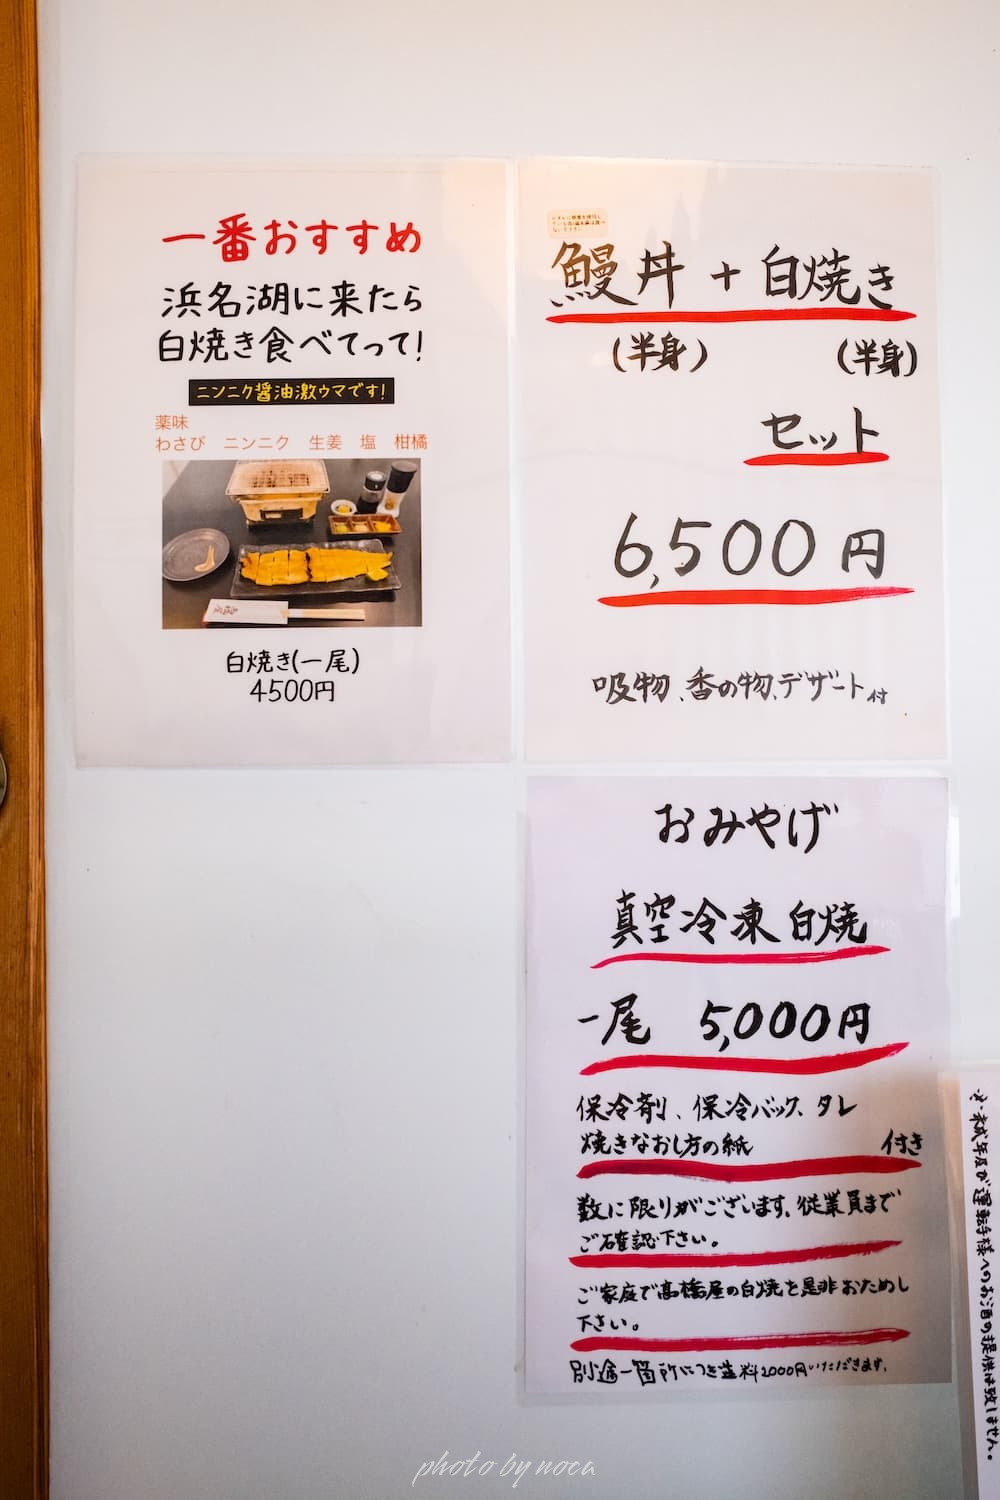 一番おすすめ
浜名湖に来たら
白焼き食べてって!
ニンニク醤油激ウマです!
薬味
わさび ニンニク 生姜 塩 柑橘
白焼き(一尾)
4500円
鰻丼 + 白焼き
(半身) (半身)
セット
6,500円
吸物、香の物、デザート付
おみやげ
真空冷凍白焼
一尾 5,000円
保冷剤、保冷バック、タレ
焼きなおし方の紙 付き
数に限りがございます。従業員まで
ご確認下さい。
ご家庭で高橋屋の白焼を是非おためし
下さい。
別途一箇所につき送料2000円いただきます。
※未成年及び運転手様へのお酒の提供は致しません。
photo by noca